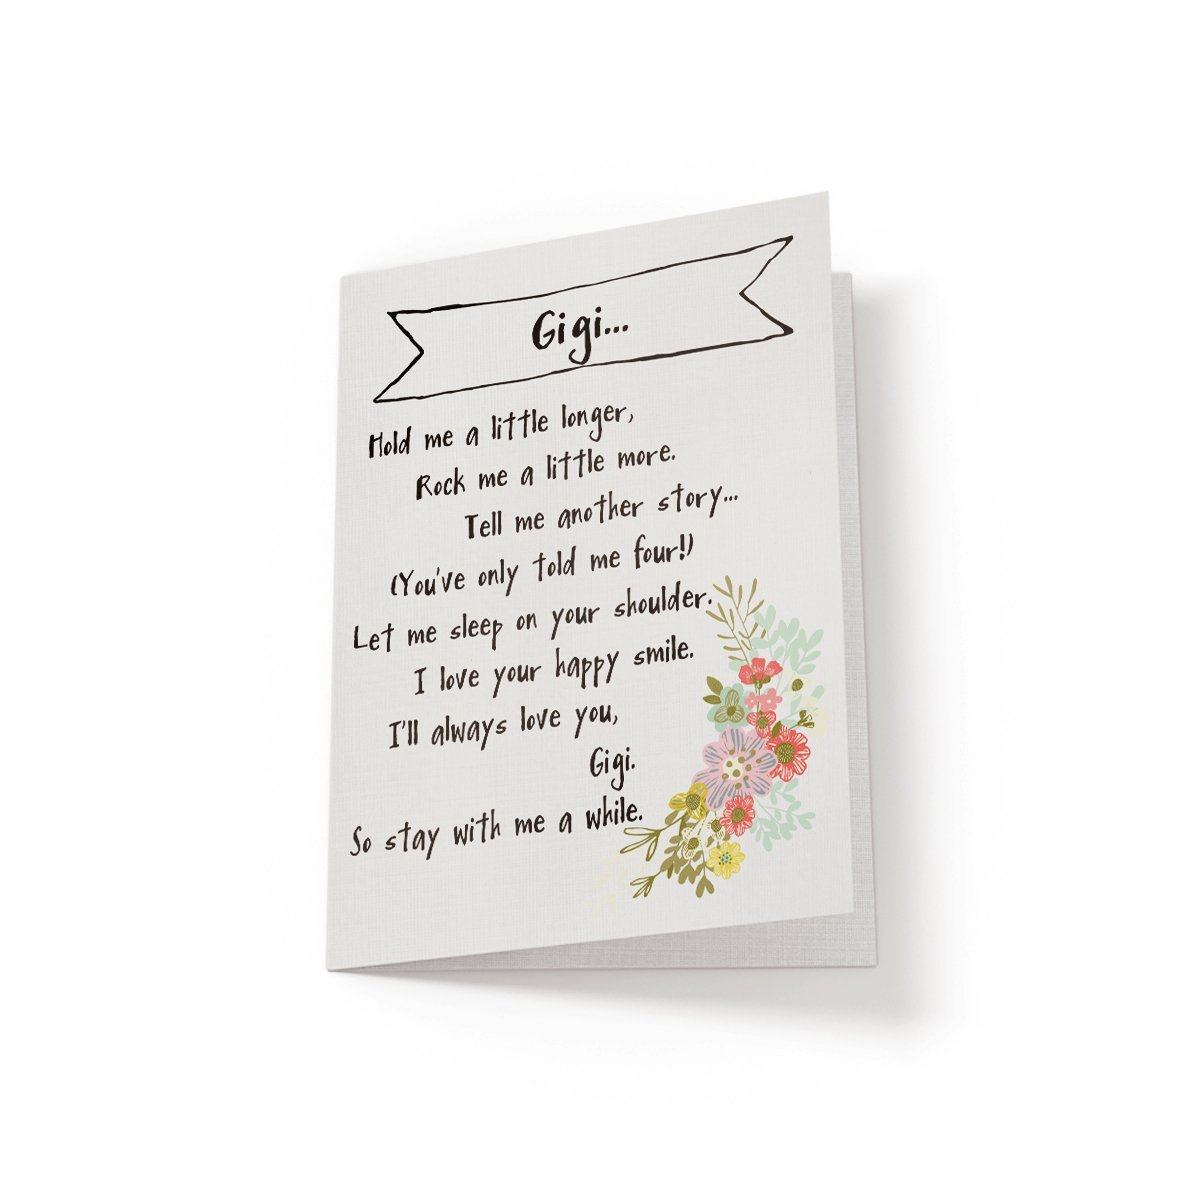 Gigi...
Hold me a little longer,
Rock me a little more.
Tell me another story...
(You've only told me four!)
Let me sleep on your shoulder.
I love your happy smile.
I'll always love you,
Gigi.
So stay with me a while.